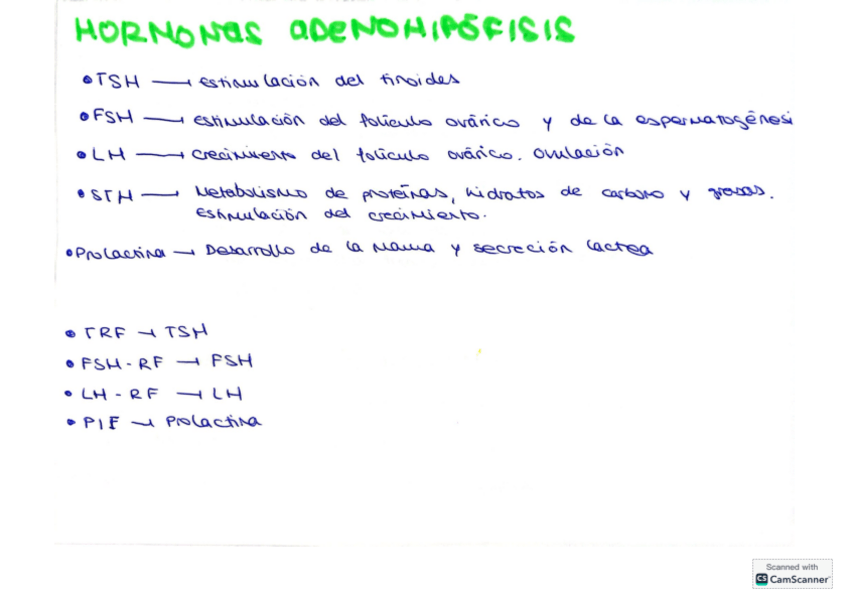 HORMONAS ADENOHIPÓFISIS
• TSH → estimulación del tiroides
• FSH → estimulación del folículo ovárico y de la espermatogénesi
• LH → crecimiento del folículo ovárico. Ovulación
• STH → Metabolismo de proteínas, hidratos de carbono y grasas.
Estimulación del crecimiento.
• Prolactina → Desarrollo de la mama y secreción lactea
• TRF → TSH
• FSH-RF → FSH
• LH-RF → LH
• PIF → Prolactina
Scanned with
CS CamScanner